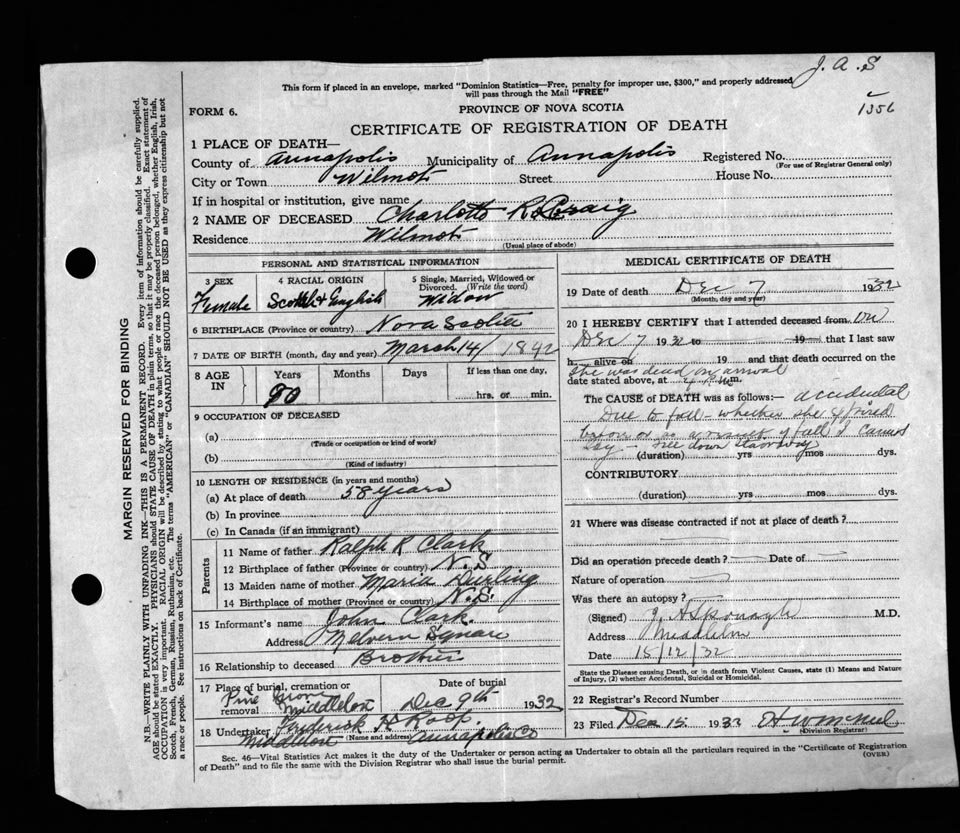 J. A. S
1356
This form if placed in an envelope, marked "Dominion Statistics—Free, penalty for improper use, $300," and properly addressed
will pass through the Mail "FREE"
FORM 6.
PROVINCE OF NOVA SCOTIA
CERTIFICATE OF REGISTRATION OF DEATH
1 PLACE OF DEATH—
County of Annapolis Municipality of Annapolis Registered No.
(For use of Registrar General only)
City or Town Wilmot Street House No.
If in hospital or institution, give name
2 NAME OF DECEASED Charlotte R. Craig
Residence Wilmot
(Usual place of abode)
PERSONAL AND STATISTICAL INFORMATION
3 SEX 4 RACIAL ORIGIN 5 Single, Married, Widowed or Divorced. (Write the word)
Female Scotch & English Widow
6 BIRTHPLACE (Province or country) Nova Scotia
7 DATE OF BIRTH (month, day and year) March 14/ 1842
8 AGE IN Years Months Days If less than one day,
90 hrs. or min.
9 OCCUPATION OF DECEASED
(a)
(Trade or occupation or kind of work)
(b)
(Kind of industry)
10 LENGTH OF RESIDENCE (in years and months)
(a) At place of death 58 years
(b) In province
(c) In Canada (if an immigrant)
Parents
11 Name of father Ralph R Clark
12 Birthplace of father (Province or country) N. S
13 Maiden name of mother Maria Durling
14 Birthplace of mother (Province or country) N. S.
15 Informant's name John Clark
Address Melvern Square
16 Relationship to deceased Brother
17 Place of burial, cremation or removal Date of burial
Pine Grove Middleton Dec 9th 1932
18 Undertaker Frederick H Roop.
(Name and address)
Middleton Annapolis Co
MEDICAL CERTIFICATE OF DEATH
19 Date of death Dec 7 1932
(Month, day and year)
20 I HEREBY CERTIFY that I attended deceased from on
Dec 7 1932 to 19 that I last saw
h alive on 19 and that death occurred on the
She was dead on arrival
date stated above, at m.
The CAUSE of DEATH was as follows:— accidental
Due to fall – whether she
before or as a result of fall I cannot
say – fell down stairway
(duration) yrs mos dys.
CONTRIBUTORY
(duration) yrs mos dys.
21 Where was disease contracted if not at place of death?
Did an operation precede death? Date of
Nature of operation
Was there an autopsy?
(Signed) M.D.
Address Middleton
Date 15/12/32
State the Disease causing Death, or in death from Violent Causes, state (1) Means and Nature
of Injury, (2) whether Accidental, Suicidal or Homicidal.
22 Registrar's Record Number
23 Filed Dec 15 1932
(Division Registrar)
Sec. 46—Vital Statistics Act makes it the duty of the Undertaker or person acting as Undertaker to obtain all the particulars required in the "Certificate of Registration
of Death" and to file the same with the Division Registrar who shall issue the burial permit.
(OVER)
MARGIN RESERVED FOR BINDING
N.B.—WRITE PLAINLY WITH UNFADING INK—THIS IS A PERMANENT RECORD. Every item of information should be carefully supplied.
AGE should be stated EXACTLY. PHYSICIANS should STATE CAUSE OF DEATH in plain terms, so that it may be properly classified. Exact statement of
OCCUPATION is very important. RACIAL ORIGIN will be described by stating to what people or race the deceased person belonged, whether English, Irish,
Scotch, French, German, Russian, Ruthenian, etc. The terms "AMERICAN" or "CANADIAN" SHOULD NOT BE USED as they express citizenship but not
a race or people. See instructions on back of Certificate.